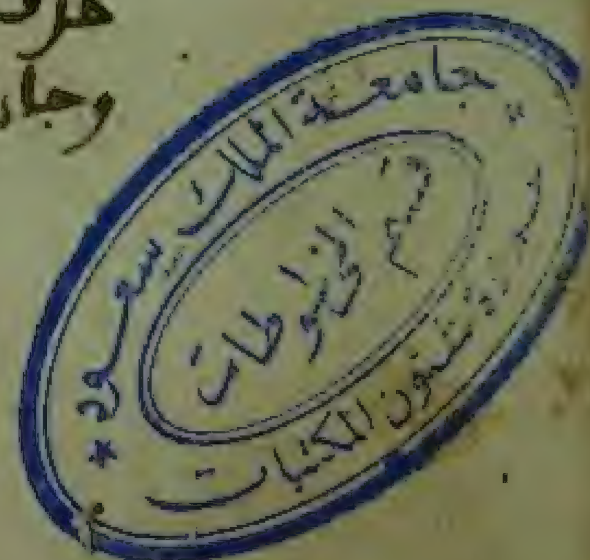 وجا
جامعة الملك سعود
قسم المخطوطات
شئون المكتبات